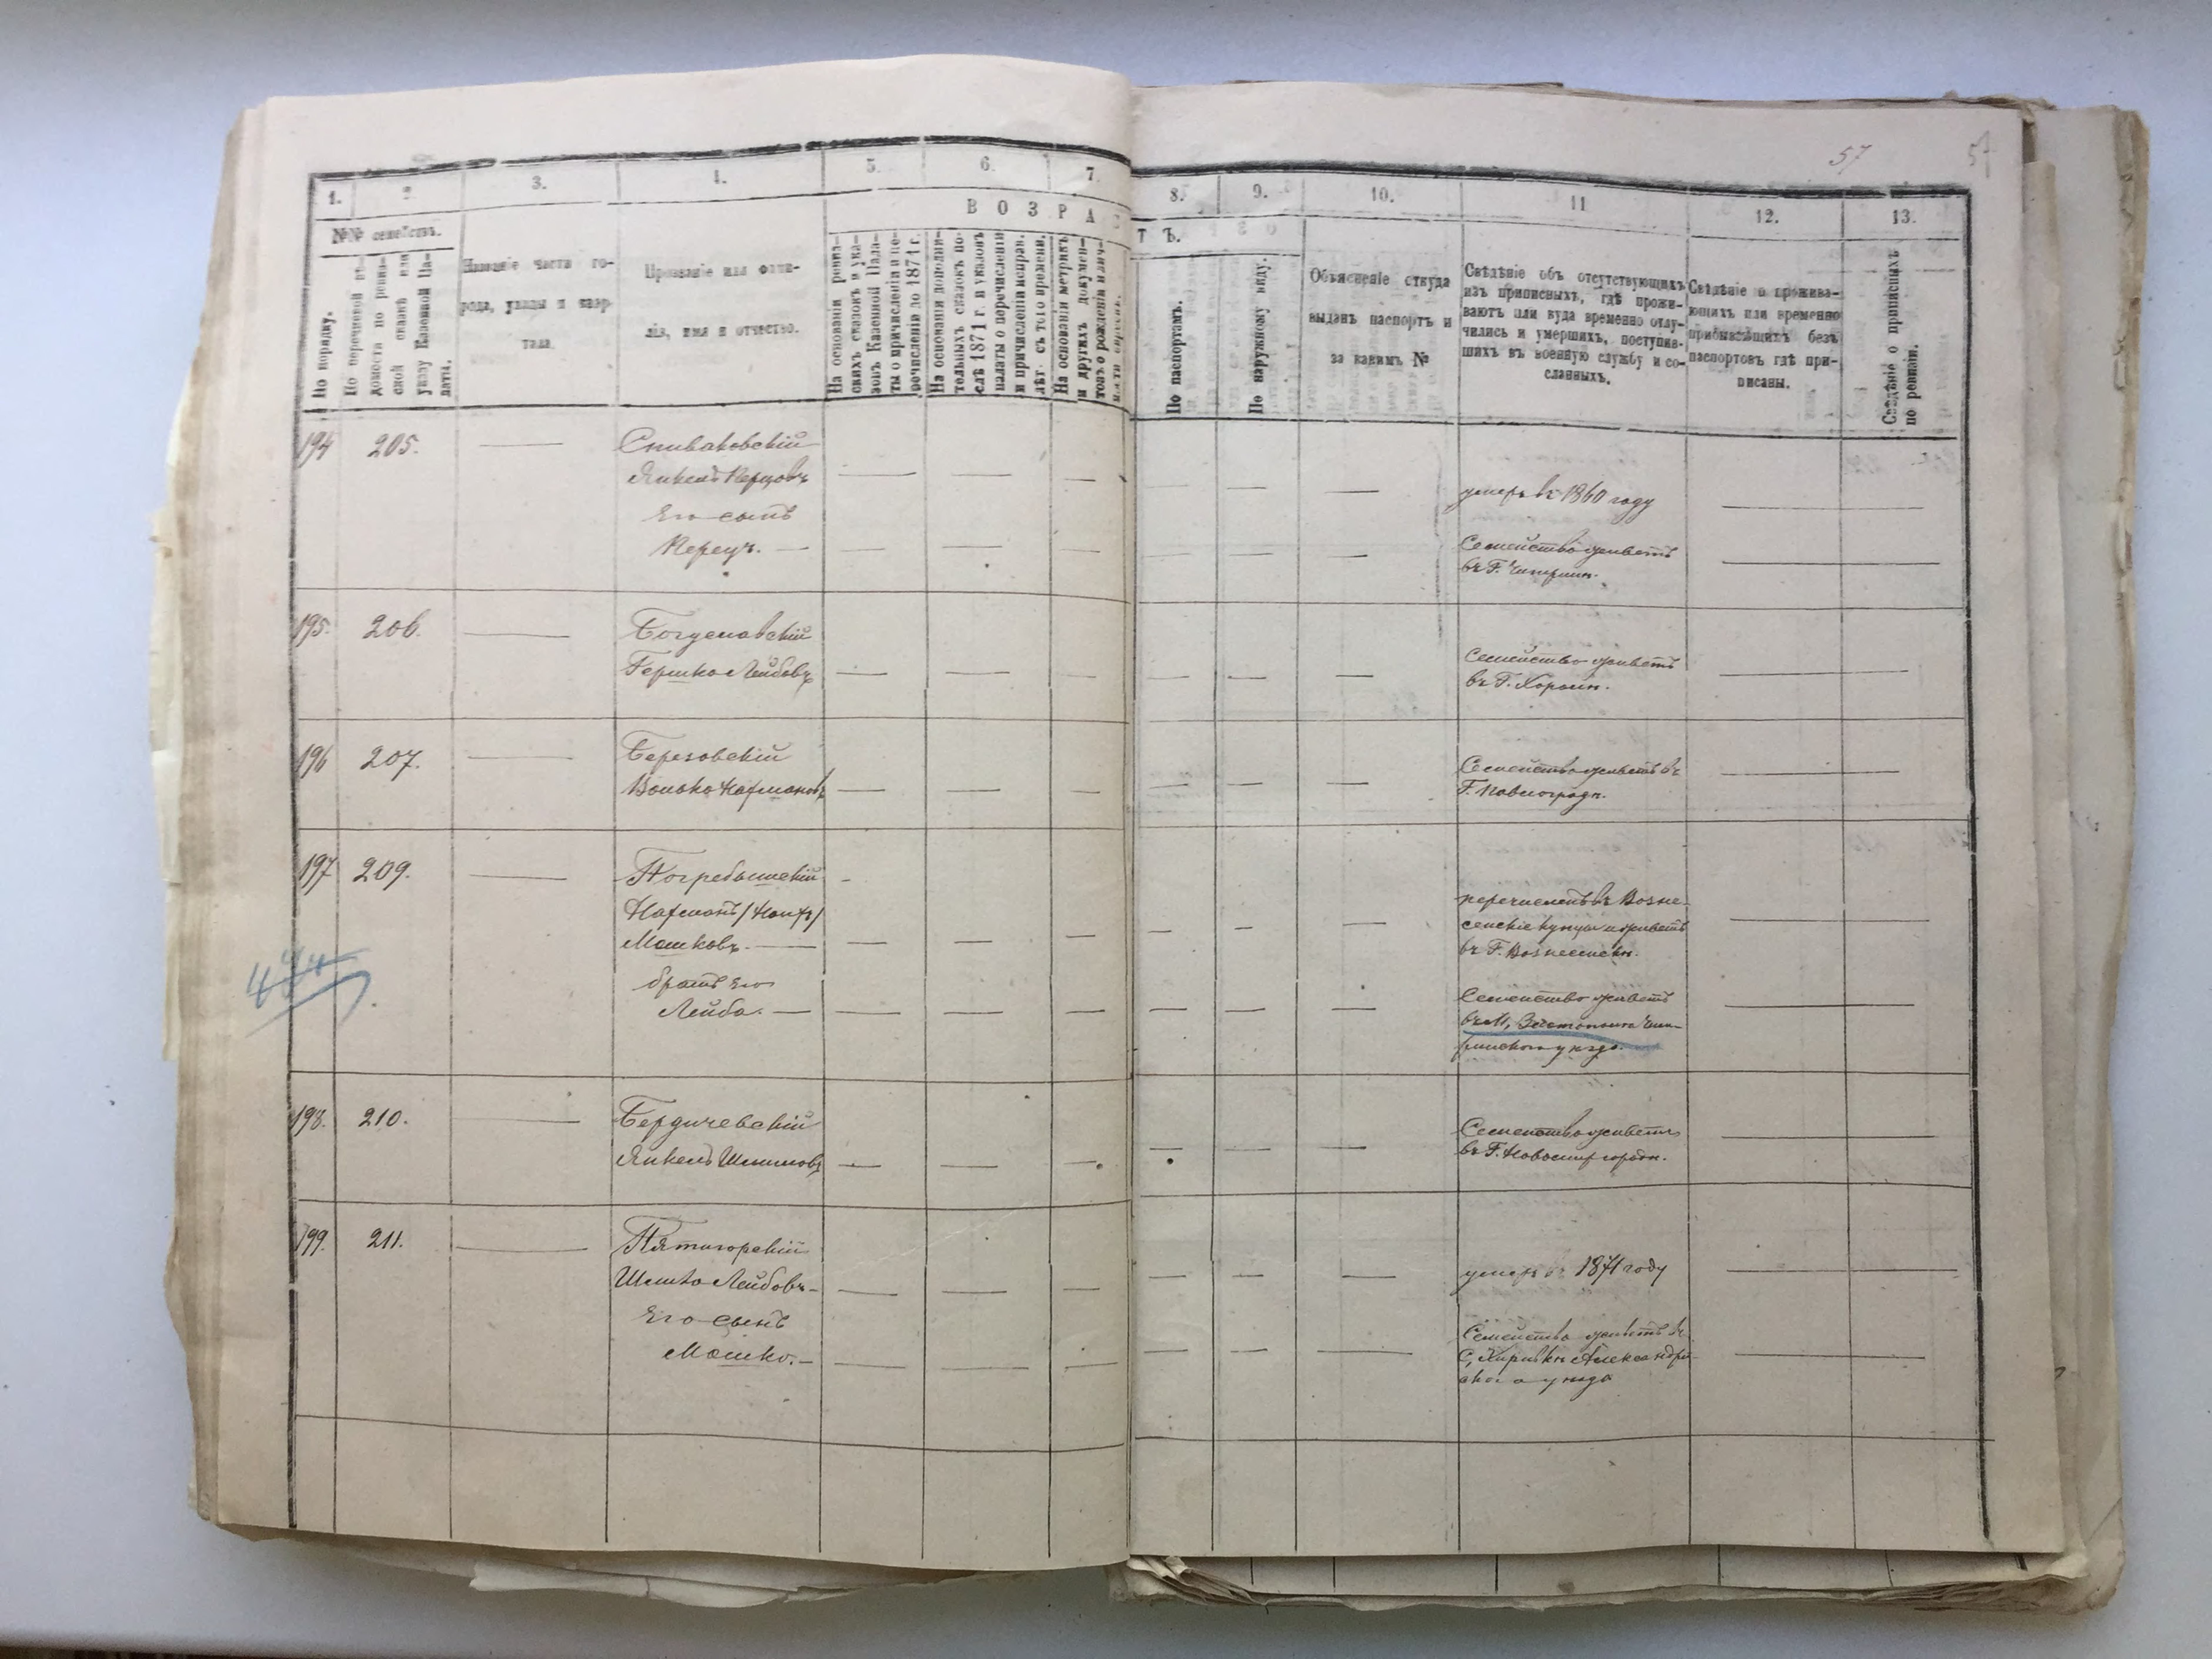 57 57
1. 2. 3. 4. 5. 6. 7. 8. 9. 10. 11 12. 13.
№№ семействъ.
В О З Р А С Т Ъ.
По порядку.
По перечневой вѣ-
домости по ревиз-
ской сказкѣ или
указу Казенной Па-
латы.
Названіе части го-
рода, улицы и квар-
тала.
Прозваніе или фами-
лія, имя и отчество.
На основаніи ревиз-
скихъ сказокъ и ука-
зовъ Казенной Пала-
ты о причисленіи и пе-
речисленіи до 1871 г.
На основаніи дополни-
тельныхъ сказокъ по-
слѣ 1871 г. и указовъ
палаты о перечисленіи
и причисленіи исправ.
лѣт. съ того времени.
На основаніи метрикъ
и другихъ докумен-
товъ о рожденіи
По паспортамъ.
По наружному виду.
Объясненіе откуда
выданъ паспортъ и
за какимъ №
Свѣдѣніе объ отсутствующихъ
изъ приписныхъ, гдѣ прожи-
ваютъ или куда временно отлу-
чились и умершихъ, поступив-
шихъ въ военную службу и со-
сланныхъ.
Свѣдѣніе о прожива-
ющихъ или временно
прибывающихъ безъ
паспортовъ гдѣ при-
писаны.
Свѣдѣніе о приписныхъ
по ревизіи.
194 205. — Спиваковскій
Янкель Перцовъ — — — — — — умеръ въ 1860 году —
Его сынъ
Перецъ. — — — — — — — Семейство живетъ —
въ Г. Чигиринѣ.
195. 206. — Богуславскій
Гершко Лейбовъ — — — — — — Семейство живетъ —
въ Г. Хоролѣ.
196 207. — Березовскій Семейство живетъ въ —
Волько Нахмановъ — — — — — — Г. Павлоградѣ.
197 209. — Погребышскій -
Нахманъ перечисленъ въ Возне-
Мошковъ. — — — — — — — сенскіе купцы и живетъ —
въ Г. Вознесенскѣ.
братъ его
Лейба. — — — — — — — Семейство живетъ —
въ М. Златополи Чиги-
ринского уѣзда.
198. 210. — Бердичевскій Семейство живетъ —
Янкель Шлиомовъ — — — — — — въ Г. Новомиргородѣ.
199. 211. — Пятигорскій
Шлиомо Лейбовъ — — — — — — умеръ въ 1871 году —
Его сынъ
Мошко. — — — — — — — Семейство живетъ въ —
Александрій-
скаго уѣзда